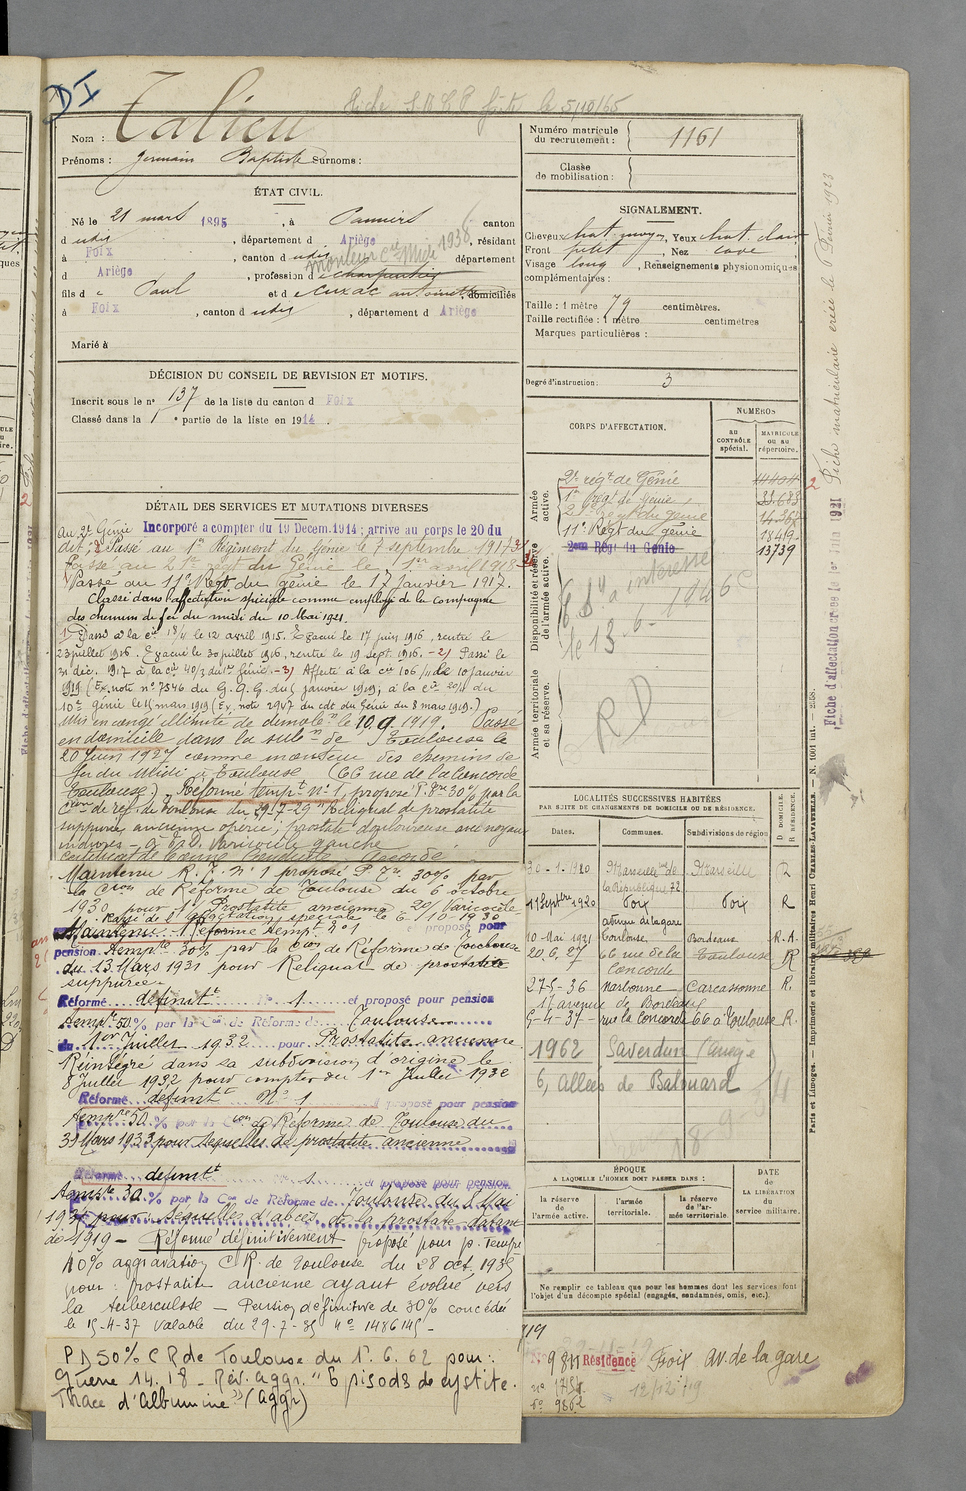 DI
Fiche S.M.&P faite le 5/10/65
Nom : Talieu
Prénoms : Germain Baptiste Surnoms :
ÉTAT CIVIL.
Né le 21 mars 1895, à Pamiers canton
d udit, département d Ariège, résidant
à Foix, canton d udit département
d Ariège, profession d e charpentier
monteur Cie Midi 1938
fils d e Paul et d e Cuzac antoinette domiciliés
à Foix, canton d udit, département d Ariège
Marié à
DÉCISION DU CONSEIL DE REVISION ET MOTIFS.
Inscrit sous le n° 137 de la liste du canton d Foix
Classé dans la 1e partie de la liste en 1914.
DÉTAIL DES SERVICES ET MUTATIONS DIVERSES
Au 2e Génie Incorporé a compter du 19 Decem. 1914; arrive au corps le 20 du
dit, 2 Passé au 1er Régiment du Génie le 7 septembre 1917 3
Passé au 21e regt du Génie le 1er avril 1918
Passé au 11e Regt du génie le 17 Janvier 1917.
Classé dans l'affectation spéciale comme employé de la compagnie
des chemins de fer du midi du 10 Mai 1921.
1) Passé à la cie 18/11 le 12 avril 1915. Evacué le 17 juin 1916, rentré le
23 juillet 1916. Evacué le 30 juillet 1916, rentré le 19 sept. 1916. - 2) Passé le
31 déc. 1917 à la cie 40/3 du 1er Génie. - 3) Affecté à la cie 106/11 le 10 janvier
1919 (Ex. note n° 7546 du G.Q.G. du 5 janvier 1919; à la cie 20/11 du
10e génie le 15 mars 1919 (Ex. note 2947 du cdt du Génie du 8 mars 1919.)
Mis en congé illimité de démobon le 10.9.1919. Passé
en domicile dans la subon de Toulouse le
20 Juin 1927 comme monteur des chemins de
fer du Midi à Toulouse (66 rue de la Concorde
Toulouse). Réformé tempt n° 1, proposé P. Tre 30% par la
Cion de réf. de Toulouse du 29-7-29 "Reliquat de prostatite
suppurée, ancienne opérée; prostate douloureuse avec noyaux
indurés - à b.d. Varicocèle gauche
Certificat de bonne conduite Accordé
Maintenu R.T. N° 1 proposé P. Tre. 30% par
la Cion de Réforme de Toulouse du 6 octobre
1930 pour 1° Prostatite ancienne 2°/ Varicocèle
Rayé de l'affectation spéciale le 6/10-1930
Maintenu Réforme tempt n°1 et proposé pour
pension Tempre 30% par la Con de Réforme de Toulouse
du 13 Mars 1931 pour Reliquat de prostatite
suppurée
Réformé définitt N° 1 et proposé pour pension
Tempre 50 % par la Con de Réforme de Toulouse
du 1er Juillet 1932 pour Prostatite ancienne
Réintégré dans sa subdivision d'origine le
8 Juillet 1932 pour compter du 1er Juillet 1932
Réformé définitt N° 1 et proposé pour pension
Tempre 50 % par la Con de Réforme de Toulouse du
31 Mars 1933 pour séquelles de prostatite ancienne
Réformé définitt N° 1 et proposé pour pension
Tempre 30 % par la Con de Réforme de Toulouse du 8 Mai
pour Séquelles d'abcès de la prostate datant
de 1919 - Réformé définitivement proposé pour p. Tempre
40% aggravation C.R. de Toulouse du 28 oct. 1935
pour : prostatite ancienne ayant évolué vers
la tuberculose - Pension définitive de 30% concédée
le 15-4-37 valable du 29-7-35 n° 1486145 -
P D 50% C R de Toulouse du 1er. 6. 62 pour :
Guerre 14. 18 - Rév. aggr. "Episods de cystite.
Trace d'albumine" (Aggr)
Numéro matricule du recrutement : 1161
Classe de mobilisation :
SIGNALEMENT.
Cheveux chat. moyen, Yeux chat. clair
Front petit, Nez cave,
Visage long, Renseignements physionomiques
complémentaires :
Taille : 1 mètre 79 centimètres.
Taille rectifiée : 1 mètre centimètres
Marques particulières :
Degré d'instruction : 3
CORPS D'AFFECTATION.
NUMÉROS
au CONTRÔLE spécial.
MATRICULE ou au répertoire.
Armée active.
2e régt de Génie
1er Régt de Génie 33.683
21e Regt du génie
11e Regt du génie 18419
2eme Régt du Génie 13739
Disponibilité et réserve de l'armée active.
le 13-6-1946
Armée territoriale et sa réserve.
RD
LOCALITÉS SUCCESSIVES HABITÉES
PAR SUITE DE CHANGEMENTS DE DOMICILE OU DE RÉSIDENCE.
D. DOMICILE. R. RÉSIDENCE.
Dates. Communes. Subdivisions de région
30-1-1920 Marseille de la République 32 Marseille R
11 Septbre 1920 Foix Foix R
avenue de la gare
10 Mai 1921 Toulouse Bordeaux R.A.
20, 6, 27 66 rue de la Concorde Toulouse R
27-5-36 Narbonne Carcassonne R.
17 avenue de Bordeaux
5-4-37 rue la Concorde 66 à Toulouse R.
1962 Saverdun (Ariège
6, Allées de Balouard
ÉPOQUE
A LAQUELLE L'HOMME DOIT PASSER DANS :
la réserve de l'armée active.
l'armée territoriale.
la réserve de l'armée territoriale.
DATE DE LA LIBÉRATION du service militaire.
Ne remplir ce tableau que pour les hommes dont les services font
l'objet d'un décompte spécial (engagés, condamnés, omis, etc.).
Résidence Foix av. de la gare
12/12/19
Fiche matriculaire créée le Février 1923
Fiche d'affectation créée le 1er Mai 1921
Paris et Limoges. — Imprimerie et librairie militaires Henri Charles-Lavauzelle. — N. 1001 int. — 2.58.